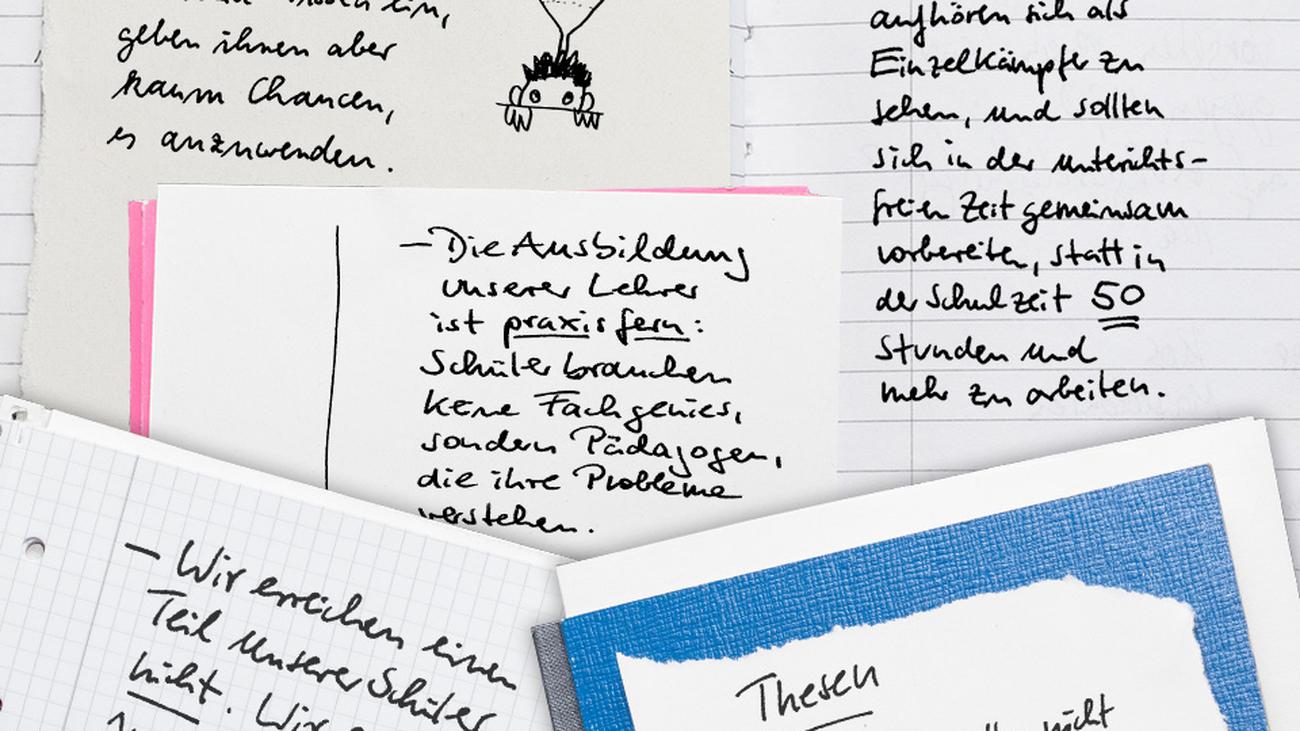 geben ihnen aber
kaum Chancen,
es anzuwenden.
aufhören sich als
Einzelkämpfer zu
sehen, und sollten
sich in der unterichts-
freien Zeit gemeinsam
vorbereiten, statt in
der Schulzeit 50
Stunden und
mehr zu arbeiten.
– Die Ausbildung
unserer Lehrer
ist praxisfern:
Schüler brauchen
keine Fachgenies,
sondern Pädagogen,
die ihre Probleme
verstehen.
– Wir erreichen einen
Teil unserer Schüler
nicht. Wir
Thesen
nicht